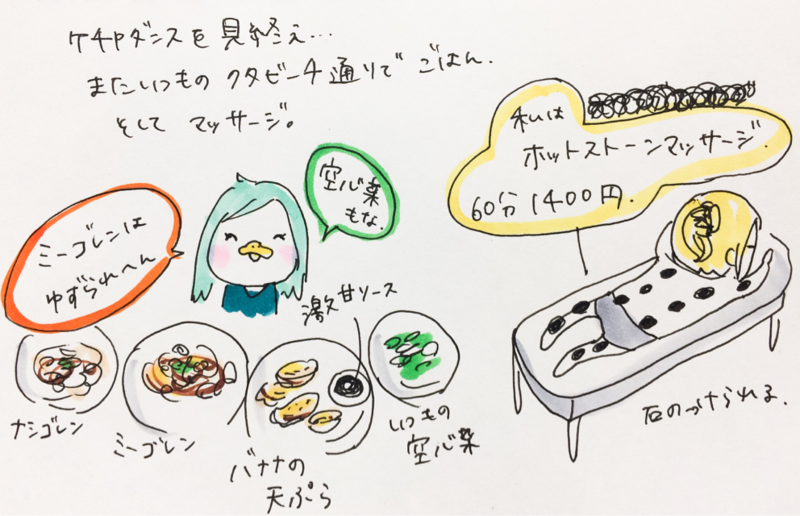 ケチャダンスを見終え…
またいつものクタビーチ通りでごはん.
そしてマッサージ。
私は
ホットストーンマッサージ.
60分1400円.
空心菜
もな.
ミーゴレンは
ゆずられへん
激甘ソース
ナシゴレン
ミーゴレン
バナナの
天ぷら
いつもの
空心菜
石のっけられる.